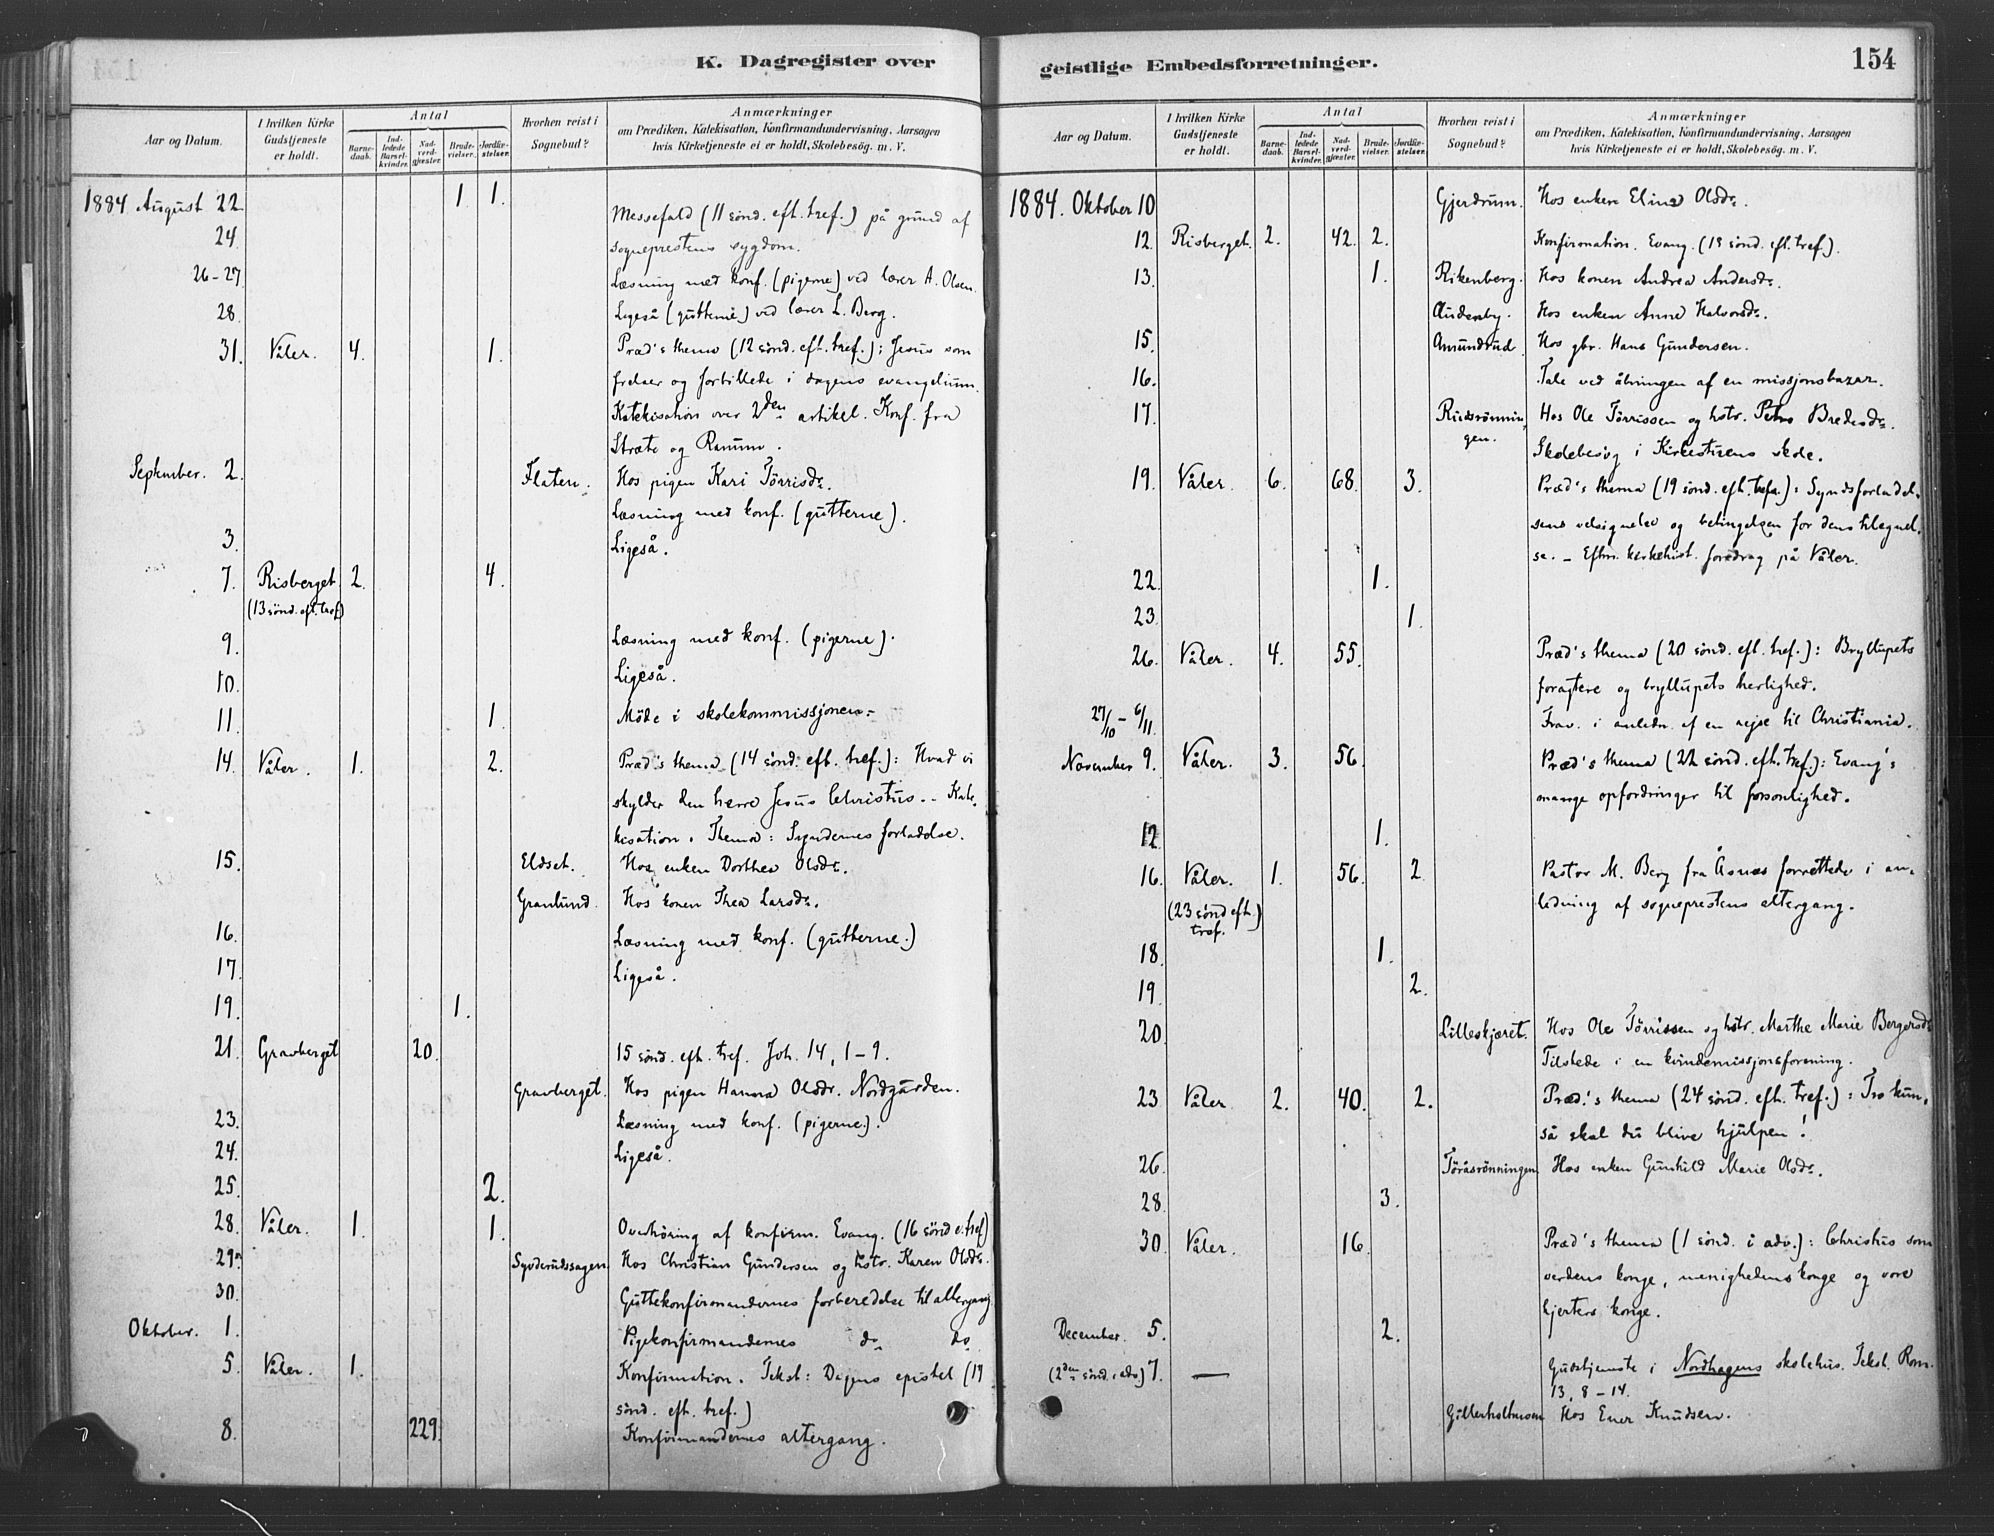 K. Dagregister over
Aar og Datum. I hvilken Kirke Gudstjeneste er holdt. Antal Barnedaab. Indledede Barselkvinder. Nadverdgjæster. Brudevielser. Jordfæstelser. Hvorhen reist i Sognebud? Anmærkninger
om Prædiken, Katekisation, Konfirmandundervisning, Aarsagen
hvis Kirketjeneste ei er holdt, Skolebesög. m. V.
1884 August 22. 1. 1.
24. Messefald (11 sönd. eft. tref.) på grund af
sogneprestens sygdom.
26-27. Læsning med konf. (pigerne) ved lærer A. Olsen.
28. Ligeså (gutterne) ved lærer L. Berg.
31. Våler. 4. 1. Præd's thema (12 sönd. eft. tref.): Jesus som
frelser og forbillede i dagens evangelium.
Katekisation over 2den artikel. Konf. fra
Stræte og Ramum.
September. 2. Flaten. Hos pigen Kari Törrisdr.
Læsning med konf. (gutterne).
3. Ligeså.
7. Risberget. 2. 4.
(13 sönd. eft. tref.)
9. Læsning med konf. (pigerne).
10. Ligeså.
11. 1. Möde i skolekommissjonen.
14. Våler. 1. 2. Præd's thema (14 sönd. eft. tref.): Hvad vi
skylder den herre Jesus Christus. - Kate-
kisation. Thema: Syndernes forladelse.
15. Eldset. Hos enken Dorthea Olsdr.
Granlund. Hos konen Thea Larsdr.
16. Læsning med konf. (gutterne.)
17. Ligeså.
19. 1.
21. Gravberget 20. 15 sönd. eft. tref. Joh. 14, 1-9.
Gravberget. Hos pigen Hanna Olsdr. Nordgården.
23. Læsning med konf. (pigerne.).
24. Ligeså.
25. 2.
28. Våler. 1. 1. Overhöring af konfirm. Evang. (16 sönd e. tref)
29. Syverudssagen Hos Christian Gundersen og hstr. Karen Olsdr.
30. Guttekonfirmandernes forberedelse til altergang
Oktober. 1. Pigekonfirmandernes do do
5. Våler. 1. Konfirmation. Tekst: Dagens epistel (17
sönd. eft. tref.)
8. 229. Konfirmandernes altergang.
geistlige Embedsforretninger. 154
Aar og Datum. I hvilken Kirke Gudstjeneste er holdt. Antal Barnedaab. Indledede Barselkvinder. Nadverdgjæster. Brudevielser. Jordfæstelser. Hvorhen reist i Sognebud? Anmærkninger
om Prædiken, Katekisation, Konfirmandundervisning, Aarsagen
hvis Kirketjeneste ei er holdt, Skolebesög. m. V.
1884. Oktober 10 Gjerdrum. Hos enken Eline Olsdr.
12. Risberget. 2. 42. 2. Konfirmation. Evang. (18 sönd. eft. tref.).
13. 1. Rikenberg. Hos konen Andrea Andersdr.
Audenby. Hos enken Anne Halvorsdr.
15. Amundrud. Hos gbr. Hans Gundersen.
16. Tale ved åbningen af en missjonsbazar.
17. Rudsrönnin- Hos Ole Törrissen og hstr. Petra Bredesdr.
gen.
Skolebesög i Kirkestuens skole.
19. Våler. 6. 68. 3. Præd's thema (19 sönd. eft. tref.): Syndsforladel-
sens velsignelse og betingelsen for dens tilegnel-
se. - Eftm. kirkehist. foredrag på Våler.
22. 1.
23. 1.
26. Våler. 4. 55. Præd's thema (20 sönd. eft. tref.): Bryllupets
foragtere og bryllupets herlighed.
27/10 - 6/11. Frav. i anledn. af en rejse til Christiania.
November 9. Våler. 3. 56. Præd's thema (22 sönd. eft. tref.): Evang's
mange opfordringer til forsonlighed.
12. 1.
16. Våler. 1. 56. 2. Pastor M. Berg fra Åsnæs forrettede i an-
(23 sönd eft. tref.
ledning af sogneprestens altergang.
18. 1.
19. 2.
20. Lilleskjæret. Hos Ole Törrissen og hstr. Marthe Marie Bergersdr
Tilstede i en kvindemissjonsforening.
23 Våler 2. 40. 2. Præd.'s thema (24 sönd. eft. tref.): Tro kun,
så skal du blive hjulpen!
26. Töråsrönningen Hos enken Gunhild Marie Olsdr.
28. 3.
30. Våler. 16. Præd's thema (1 sönd. i adv.): Christus som
verdens konge, menighedens konge og vore
hjerters konge.
December. 5. 2.
(2den sönd. i adv.) 7. — Gudstjeneste i Nordhagens skolehus. Tekst. Rom.
13, 8-14.
Gillerholtmoen Hos Ener Knudsen.